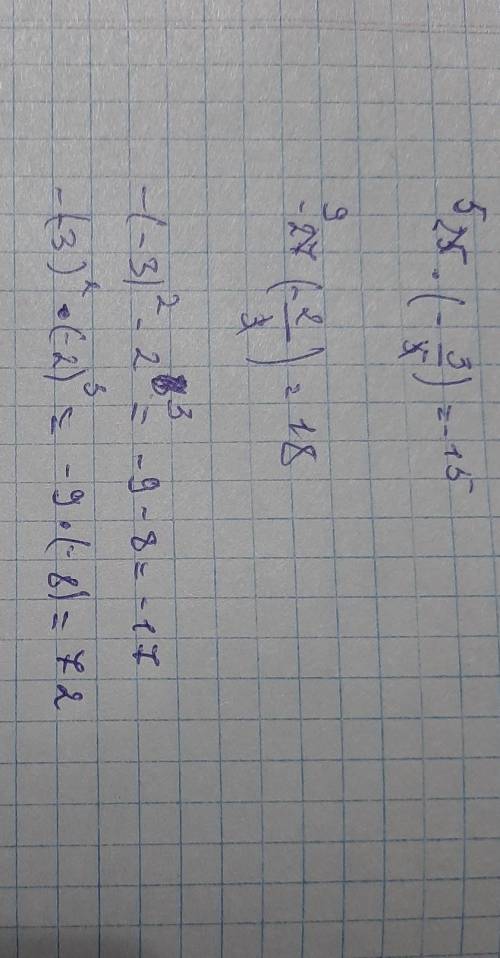 ⁵25 · (-3/5) = -15
⁹-27 (-2/3) = 18
-(-3)² - 2³ = -9 - 8 = -17
-(3)² · (-2)³ = -9 · (-8) = 72